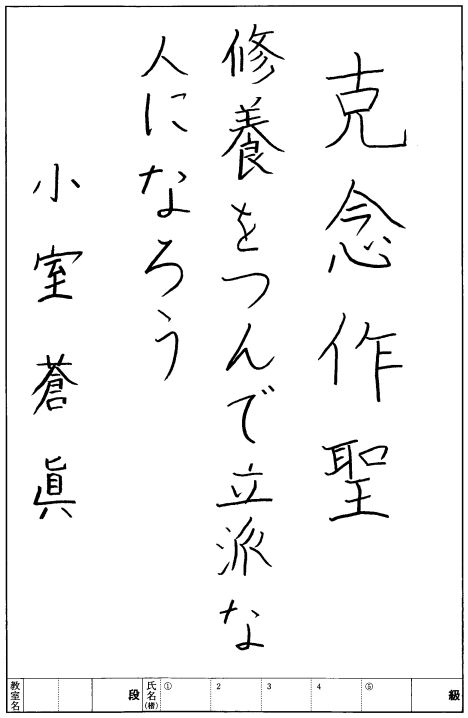 克念作聖
修養をつんで立派な
人になろう
小室蒼眞
教室名
段
氏名(樹)
① 2 3 4 ⑤
級